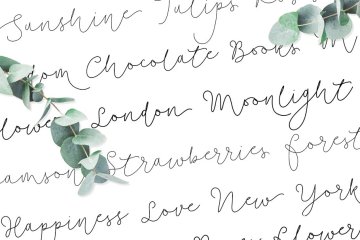 Sunshine Tulips
Chocolate Books
London Moonlight
Strawberries Forest
Happiness Love New York